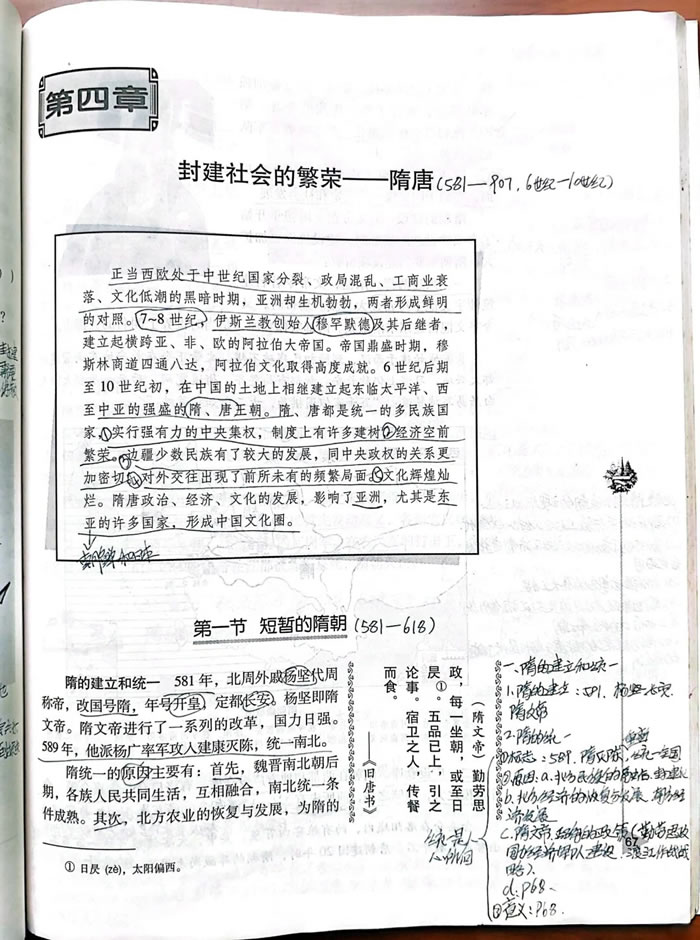 第四章
封建社会的繁荣——隋唐(581—907, 6世纪—10世纪)
正当西欧处于中世纪国家分裂、政局混乱、工商业衰
落、文化低潮的黑暗时期，亚洲却生机勃勃，两者形成鲜明
的对照。7~8世纪，伊斯兰教创始人穆罕默德及其后继者，
建立起横跨亚、非、欧的阿拉伯大帝国。帝国鼎盛时期，穆
斯林商道四通八达，阿拉伯文化取得高度成就。6世纪后期
至10世纪初，在中国的土地上相继建立起东临太平洋、西
至中亚的强盛的隋、唐王朝。隋、唐都是统一的多民族国
家，①实行强有力的中央集权，制度上有许多建树②经济空前
繁荣。③边疆少数民族有了较大的发展，同中央政权的关系更
加密切④对外交往出现了前所未有的频繁局面⑤文化辉煌灿
烂。隋唐政治、经济、文化的发展，影响了亚洲，尤其是东
亚的许多国家，形成中国文化圈。
朝鲜和日本
第一节 短暂的隋朝(581—618)
隋的建立和统一 581年，北周外戚杨坚代周
称帝，改国号隋，年号开皇，定都长安。杨坚即隋
文帝。隋文帝进行了一系列的改革，国力日强。
589年，他派杨广率军攻入建康灭陈，统一南北。
隋统一的原因主要有：首先，魏晋南北朝后
期，各族人民共同生活，互相融合，南北统一条
件成熟。其次，北方农业的恢复与发展，为隋的
（隋文帝）勤劳思
政，每一坐朝，或至日
昃①。五品已上，引之
论事。宿卫之人，传餐
而食。
——《旧唐书》
统一是
人心所向
一、隋的建立和统一
1、隋的建立：581，杨坚
隋文帝
2、隋的统一
①标志：589，隋灭陈，统一全国
②原因：a、北方民族
b、北方经济的恢复与发展
济发展
c、隋文帝
d、P68、
③意义：P68.
① 日昃（zè），太阳偏西。
67